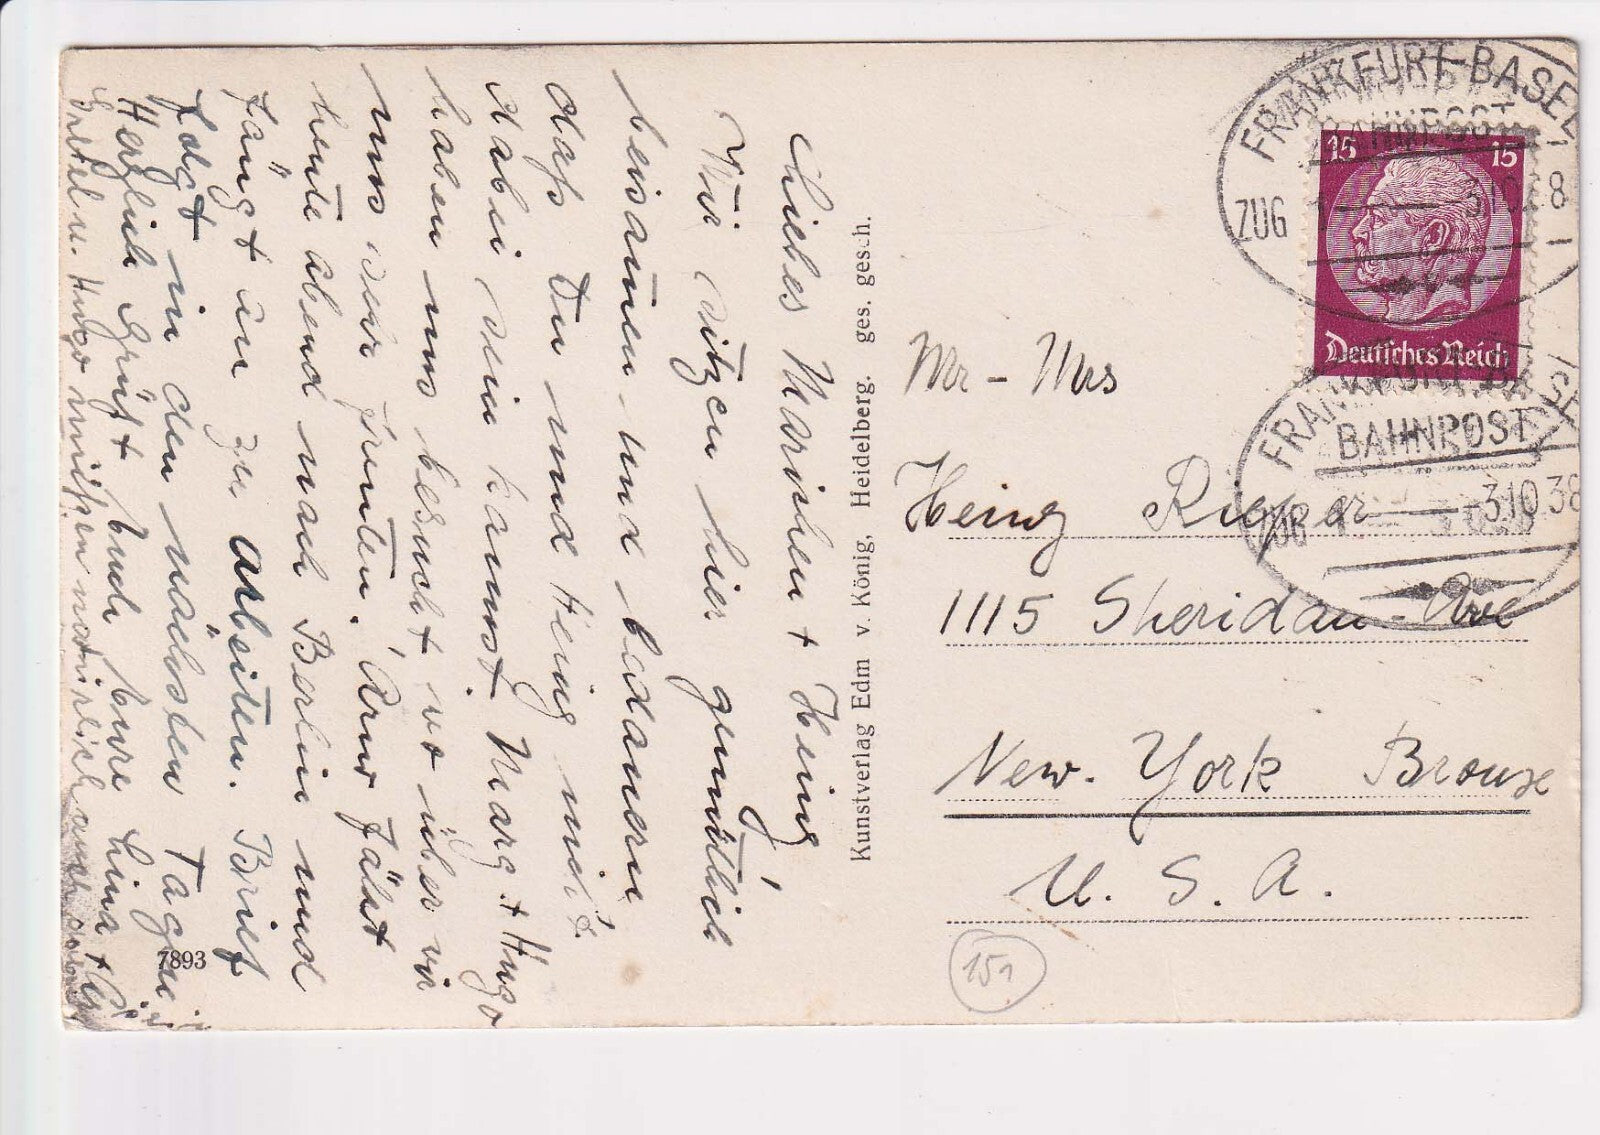 Liebes Marichen + Heinz
Wir sitzen hier gemütlich
beisamen und bedauern
daß Du und Heinz nicht
dabei sein kannst. Marg. + Hugo
haben uns besucht wo über wir
uns sehr freuten. Arno fährt
heute abend nach Berlin und
fängt an zu arbeiten. Brief
folgt in den nächsten Tagen
Herzlich Grüßt Euch Eure Lina +
Gretel u. Hugo natürlich auch
7893
Kunstverlag Edm v. König, Heidelberg. ges. gesch.
FRANKFURT-BASEL
BAHNPOST
ZUG 1 3.10.38
15 15
Deutsches Reich
FRANKFURT-BASEL
BAHNPOST
ZUG 1 -3.10.38
Mr - Mrs
Heinz Rieper
1115 Sheridan-Ave
New-York Bronx
U. S. A.
151